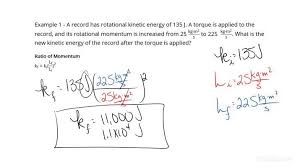 Example 1 - A record has rotational kinetic energy of 135 J. A torque is applied to the
record, and its rotational momentum is increased from 25 kgm²/s to 225 kgm²/s. What is the
new kinetic energy of the record after the torque is applied?
Ratio of Momentum
k_f = k_i(L_f/L_i)²
k_i = 135 J
L_i = 25 kgm²/s
L_f = 225 kgm²/s
k_f = 135 J (225 kgm²/s / 25 kgm²/s)²
k_f = 11,000 J
1.1×10⁴ J